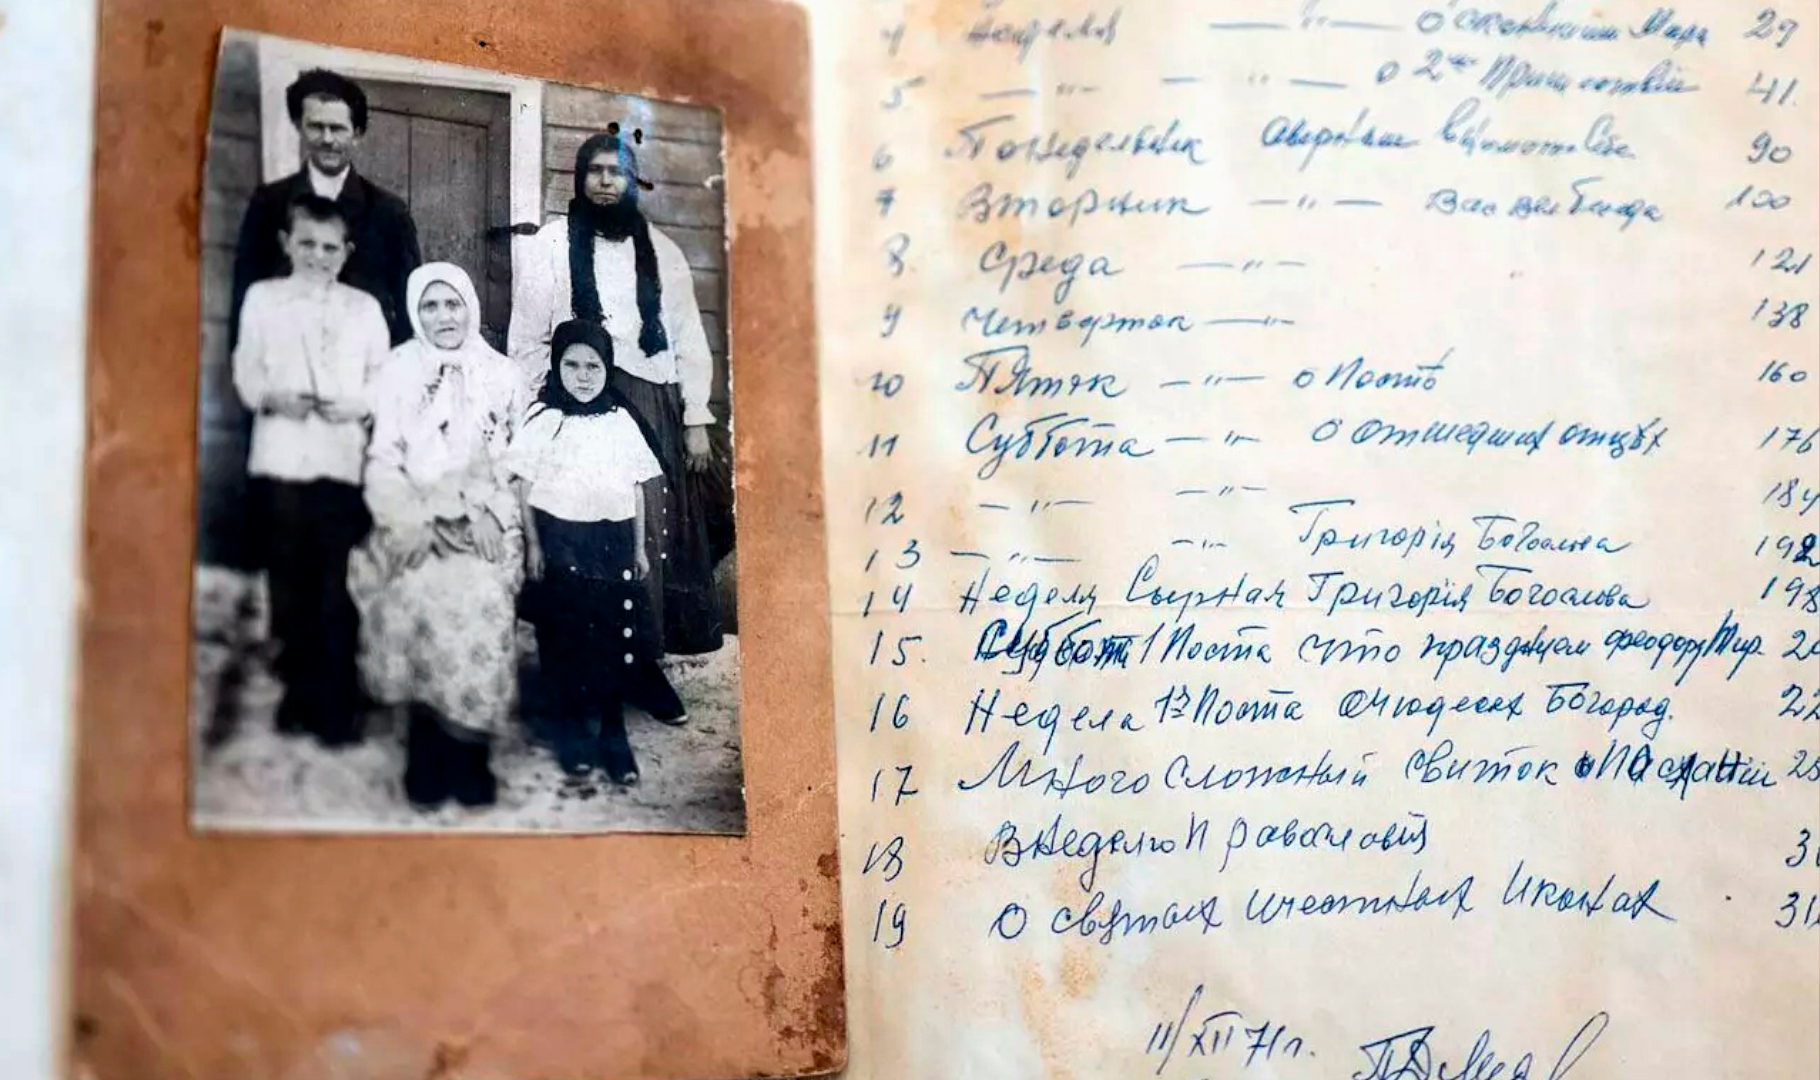 4 Неделя — " — о скончании Мира 29
5 — " — — " — о 2м Пришествіи 41.
6 Понедельник 90
7 Вторник — " — 100
8. Среда — " — 121
9 Четверток — " — 138
10 Пяток — " — о Постѣ 160
11 Суббота — " — о отшедших отцѣх 176
12 — " — — " — 184
13 — " — — " — Григорія Богослова 192
14 Неделя Сырная Григорія Богослова 198
15. Суббота 1 Поста что празднуем феодору Тир. 2
16 Недела 1я Поста о чюдесех Богород. 22
17 Многосложный Свиток 25
18 В Неделю Православия 3
19 О святых и честных Иконах 31
11/XII 71 г.